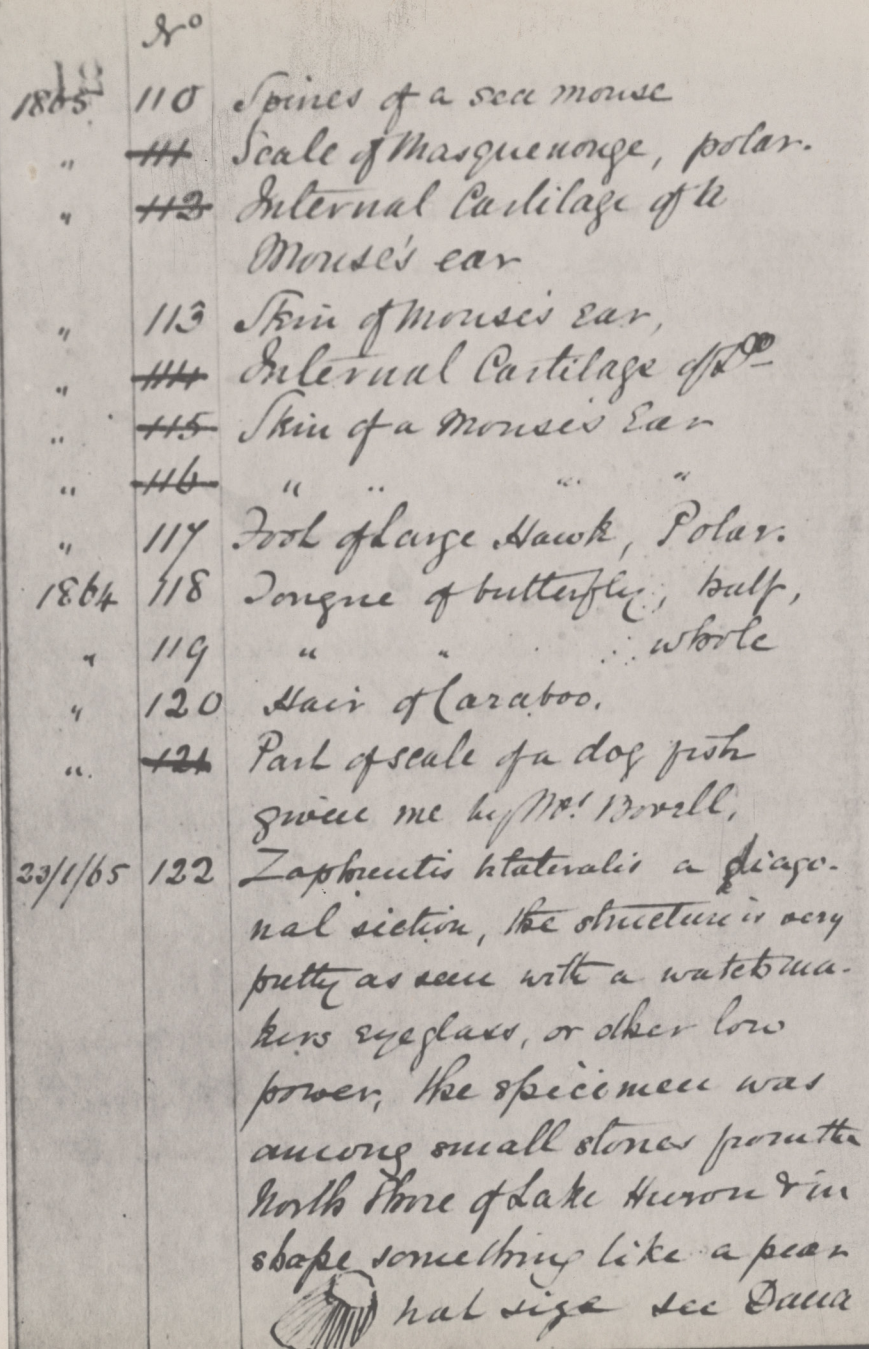 No
1865 110 Spines of a sea mouse
" 111 Scale of Masquenonge, polar.
" 112 Internal Cartilage of
Mouse's ear
" 113 Skin of Mouse's Ear,
" 114 Internal Cartilage of Do
" 115 Skin of a Mouse's Ear
" 116 " " " "
" 117 Foot of Large Hawk, Polar.
1864 118 Tongue of butterfly, half,
" 119 " " whole
" 120 Hair of Caraboo.
" 121 Part of scale of a dog fish
given me by Bovell,
23/1/65 122 Zaphrentis a diago-
nal section, the structure is very
pretty as seen with a watchma-
kers eyeglass, or other low
power, the specimen was
among small stones from the
North Shore of Lake Huron & in
shape something like a pear
nat size see Dana